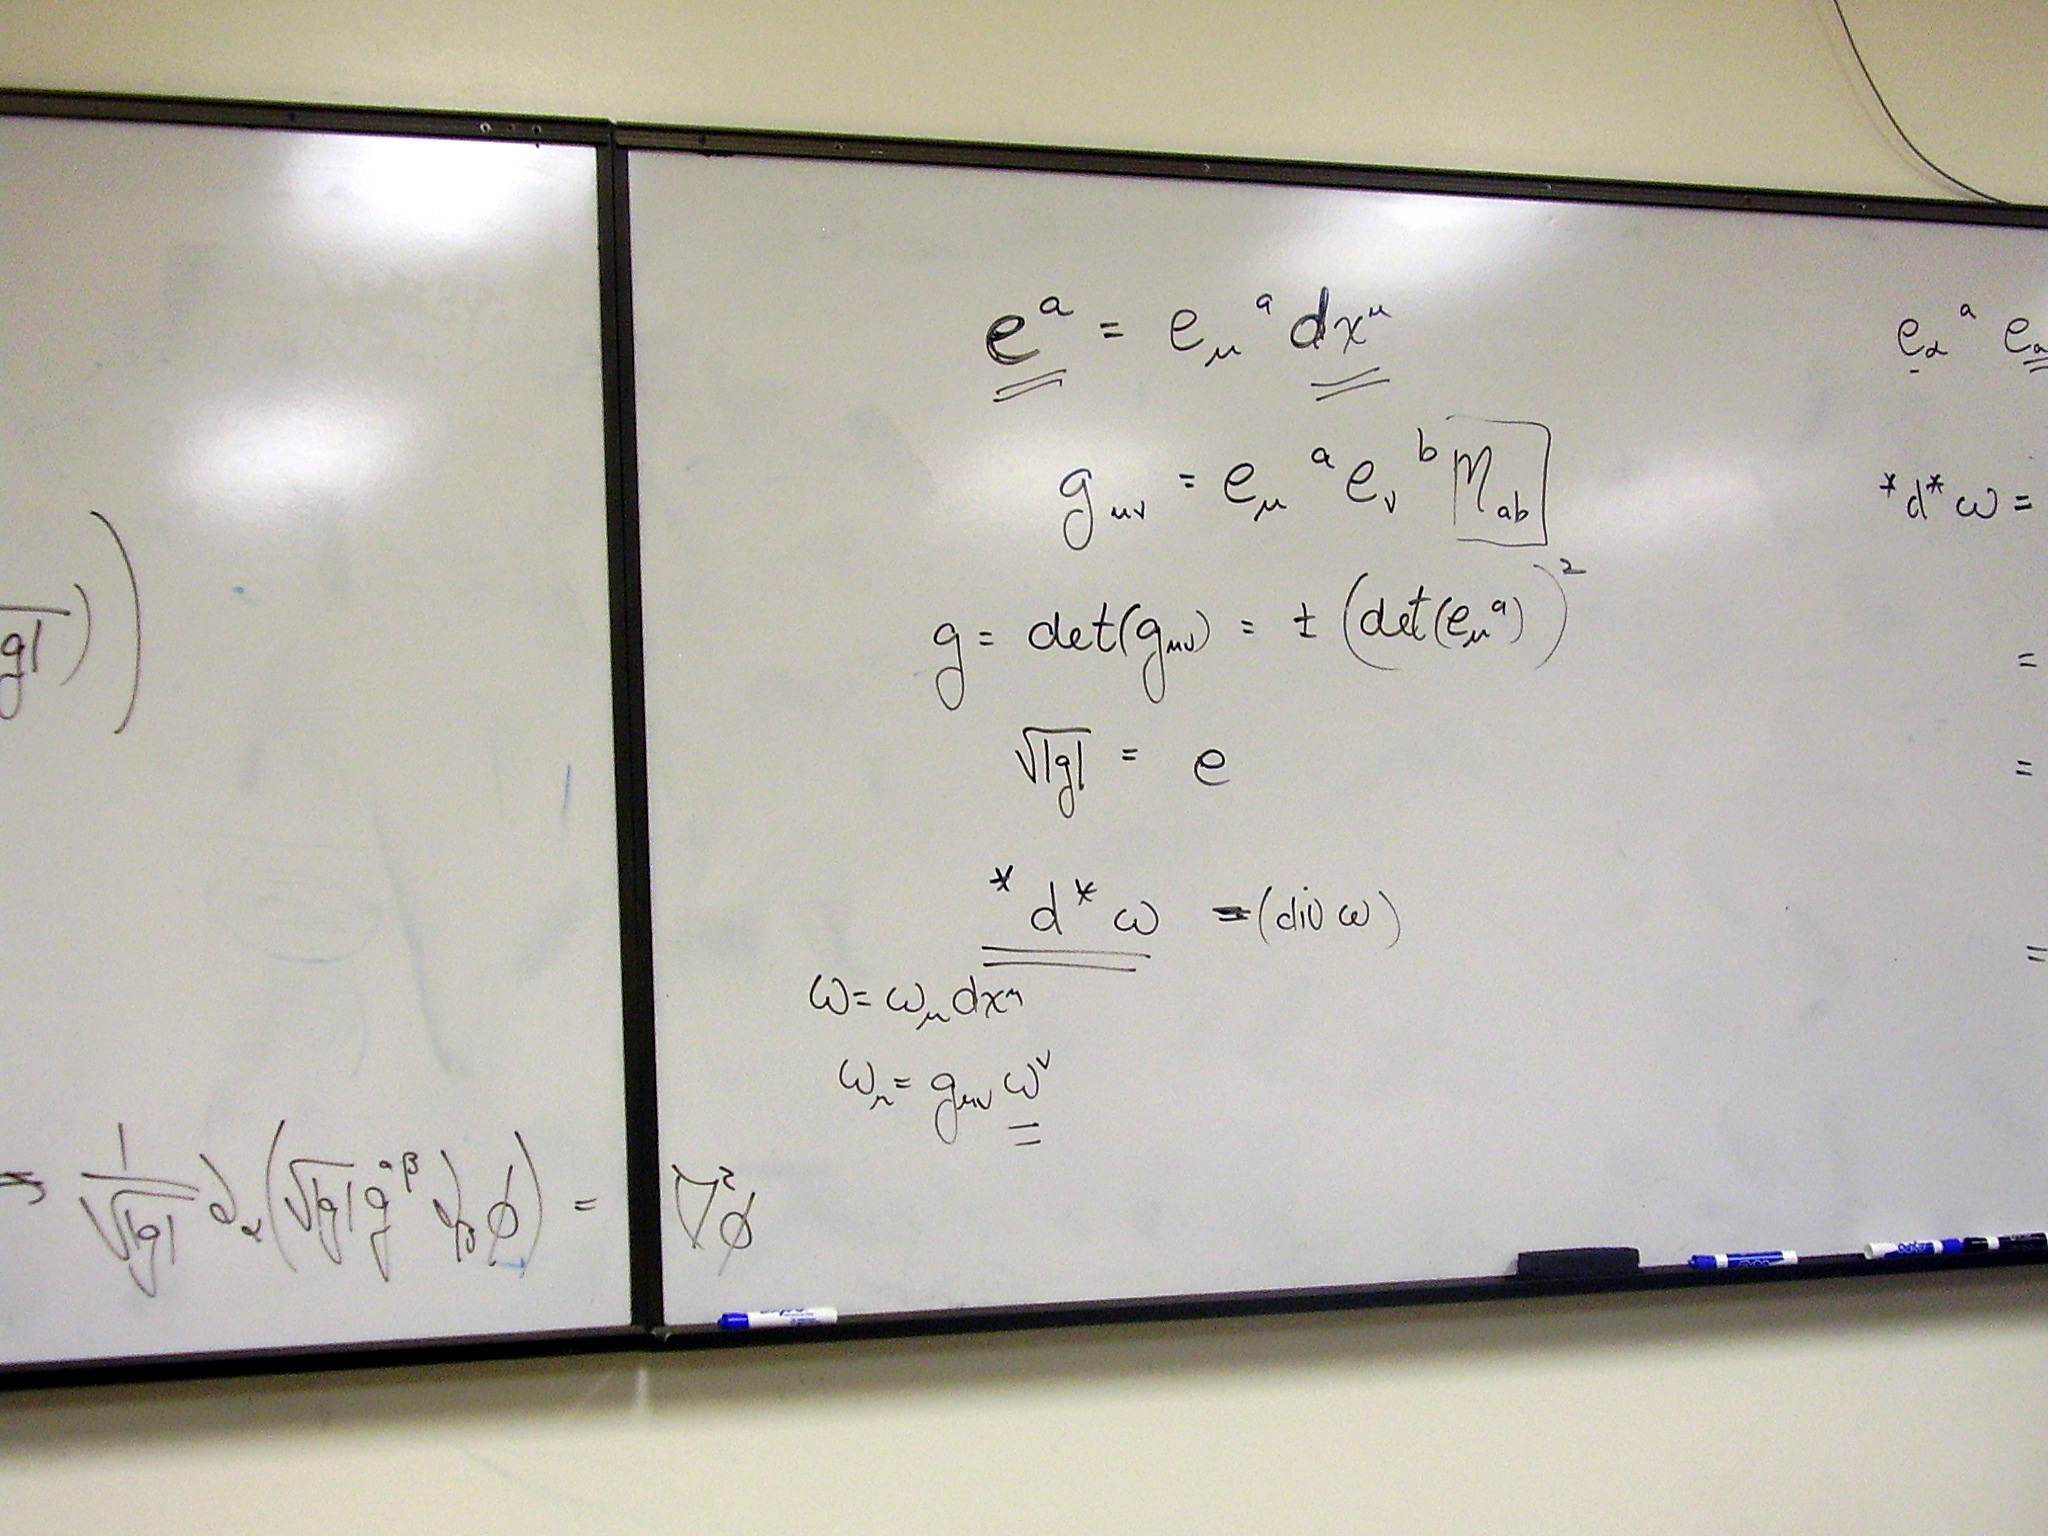 g|))
⇒ 1/√|g| ∂_α(√|g| g^{αβ} ∂_β ϕ) = ∇²ϕ
e^a = e_μ^a dx^μ
g_{μν} = e_μ^a e_ν^b η_{ab}
g = det(g_{μν}) = ± (det(e_μ^a))²
√|g| = e
*d*ω = (div ω)
ω = ω_μ dx^μ
ω_μ = g_{μν} ω^ν
e_α^a e_a
*d*ω =
=
=
=